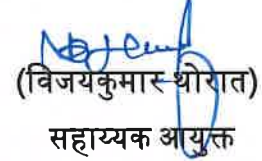 (विजयकुमार थोरात)
सहाय्यक आयुक्त